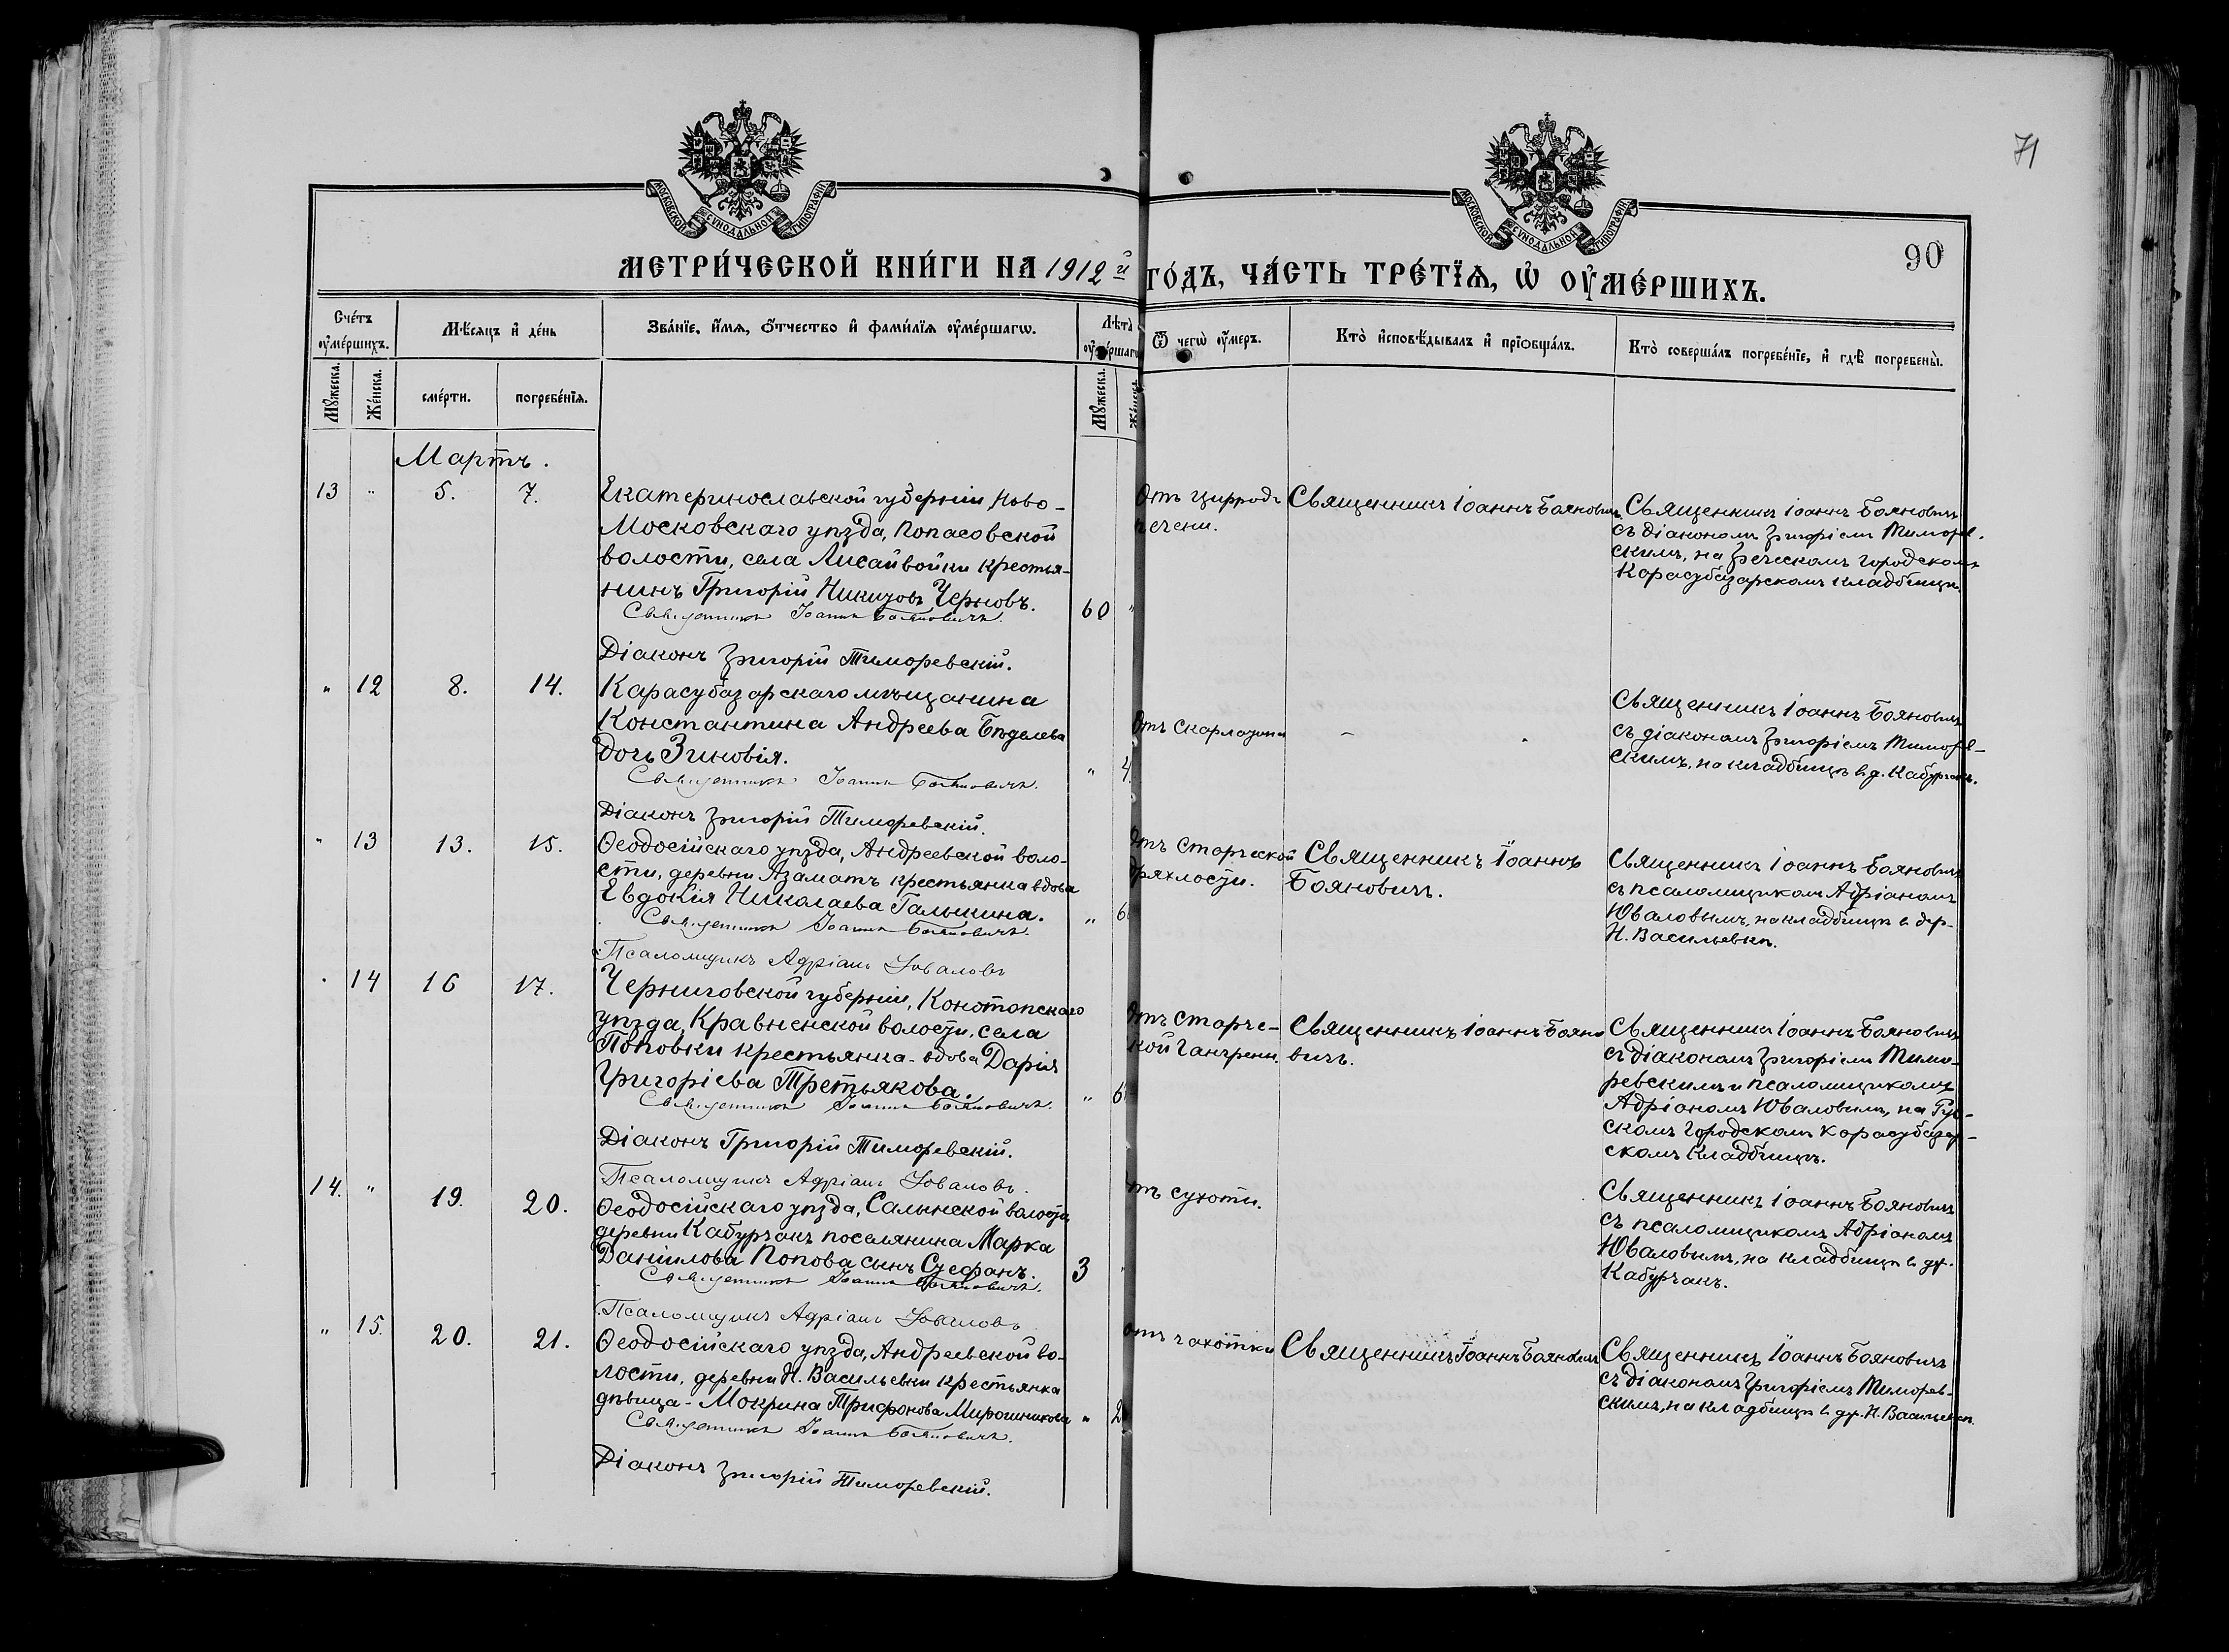 71
МОСКОВСКОЙ СѴНОДАЛЬНОЙ ТИПОГРАФІИ
МОСКОВСКОЙ СѴНОДАЛЬНОЙ ТИПОГРАФІИ
90
МЕТРИ́ЧЕСКОЙ КНИ́ГИ НА 1912 й ГО́ДЪ, ЧА́СТЬ ТРЕ́ТЇѦ, Ѡ҆ ОУ҆МЕ́РШИХЪ.
Сче́тъ оу҆ме́ршихъ.
Мѣ́сяцъ и҆ де́нь
Зва́нїе, и҆́мѧ, ѻ҆́тчество и҆ фами́лїѧ оу҆ме́ршагѡ.
Лѣ́та оу҆ме́ршагѡ
Ѿ чегѡ̀ оу҆́меръ.
Кто̀ и҆сповѣ́дывалъ и҆ прїѻбща́лъ.
Кто̀ соверша́лъ погребе́нїе, и҆ гдѣ̀ погребены̀.
Мꙋ́жеска.
Же́нска.
сме́рти.
погребе́нїѧ.
Мꙋ́жеска.
Же́нска.
Мартъ.
13 " 5. 7.
Екатеринославской губерніи, Ново-
Московскаго уѣзда, Попасовской
волости, села Лисайвойки крестья-
нинъ Григорій Никитовъ Черновъ.
60 "
Священникъ Іоаннъ Бояновичъ.
Діаконъ Григорій Тиморевскій.
Отъ цирроза
печени.
Священникъ Іоаннъ Бояновичъ.
Священникъ Іоаннъ Бояновичъ
съ діакономъ Григоріемъ Тиморев-
скимъ, на Греческомъ городскомъ
Карасубазарскомъ кладбищѣ.
" 12 8. 14.
Карасубазарскаго мѣщанина
Константина Андреева Бѣделева
дочь Зиновія.
" 4.
Священникъ Іоаннъ Бояновичъ.
Діаконъ Григорій Тиморевскій.
Отъ скарлатины
Священникъ Іоаннъ Бояновичъ
съ діакономъ Григоріемъ Тиморев-
скимъ, на кладбищѣ в д. Кабурчакъ.
" 13 13. 15.
Ѳеодосійскаго уѣзда, Андреевской воло-
сти, деревни Азаматъ крестьянка вдова
Евдокія Николаева Галыкина.
" 6
Священникъ Іоаннъ Бояновичъ.
Псаломщикъ Адріанъ Юваловъ
Отъ старческой
дряхлости.
Священникъ Іоаннъ
Бояновичъ.
Священникъ Іоаннъ Бояновичъ
съ псаломщикомъ Адріаномъ
Юваловымъ, на кладбищѣ в дер.
Н. Васильевкѣ.
14 16 17.
Черниговской губерніи, Конотопскаго
уѣзда, Кравненской волости, села
Поповки крестьянка-вдова Дарія
Григоріева Третьякова.
" 6
Священникъ Іоаннъ Бояновичъ.
Діаконъ Григорій Тиморевскій.
Псаломщикъ Адріанъ Юваловъ.
Отъ старчес-
кой гангрены.
Священникъ Іоаннъ Бояно
вичъ.
Священникъ Іоаннъ Бояновичъ
съ діакономъ Григоріемъ Тимо-
ревскимъ и псаломщикомъ
Адріаномъ Юваловымъ, на Гре-
скомъ городскомъ Карасубазар-
скомъ кладбищѣ.
14. " 19. 20.
Ѳеодосійскаго уѣзда, Салынской волости,
деревни Кабурчакъ поселянина Марка
Даніилова Попова сынъ Стефанъ.
3
Священникъ Іоаннъ Бояновичъ.
Псаломщикъ Адріанъ Юваловъ
отъ сухоты.
Священникъ Іоаннъ Бояновичъ
съ псаломщикомъ Адріаномъ
Юваловымъ, на кладбищѣ в др.
Кабурчакъ.
" 15. 20. 21.
Ѳеодосійскаго уѣзда, Андреевской во-
лости, деревни Н. Васильевки крестьянка
дѣвица - Мокрина Трифонова Мирошникова
" 2
Священникъ Іоаннъ Бояновичъ.
Діаконъ Григорій Тиморевскій.
отъ чахотки
Священникъ Іоаннъ Бояновичъ
Священникъ Іоаннъ Бояновичъ
съ діакономъ Григоріемъ Тиморев-
скимъ, на кладбищѣ в др. Н. Васильевкѣ.